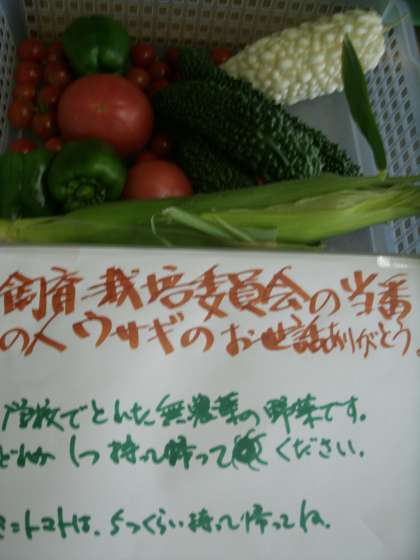 飼育栽培委員会の当番
の人ウサギのお世話ありがとう。
学校でとれた無農薬の野菜です。
どれか1つ持って帰ってください。
ミニトマトは、5つくらい持って帰ってね。